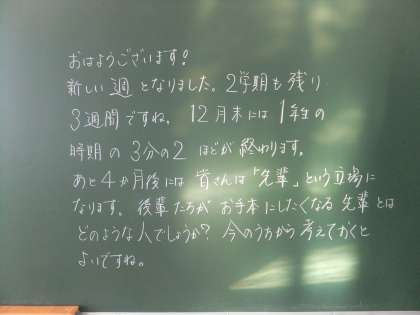 おはようございます!
新しい週となりました。2学期も残り
3週間ですね。12月末には1年生の
時期の3分の2ほどが終わります。
あと4か月後には皆さんは「先輩」という立場に
なります。後輩たちがお手本にしたくなる先輩とは
どのような人でしょうか?今のうちから考えておくと
よいですね。